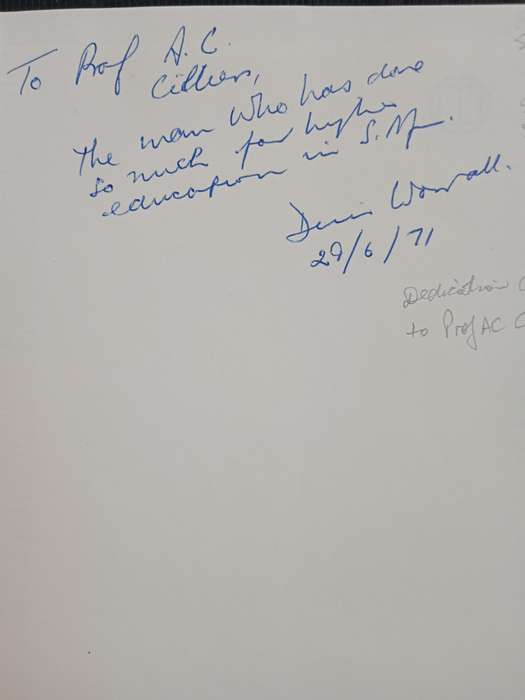 To Prof A.C.
Cilliers,
The man who has done
so much for higher
education in S. Afr.
Denis Worrall.
29/6/71
Dedication
to Prof AC C